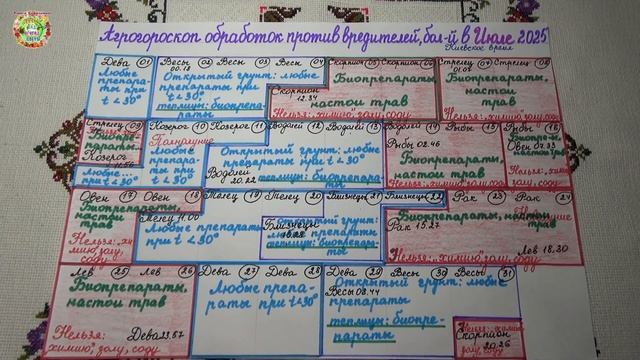 Агрогороскоп обработок против вредителей, бол-й в Июле 2025
Киевское время
Дева 01 Весы 02 Весы 03 Весы 04 Скорпион 05 Скорпион 06 Стрелец 07 Стрелец 08
Любые препараты при t<30°
00.18
Открытый грунт: любые препараты при t<30°
теплицы: биопрепараты
Скорпион 12.34
Биопрепараты, настои трав
Нельзя: химию, золу, соду
Биопрепараты, настои трав
Нельзя: химию, золу, соду
Стрелец 09 Козерог 10 Козерог 11 Водолей 12 Водолей 13 Водолей 14 Рыбы 15 Рыбы 16
Биопрепараты
Козерог
Любые... при t<30°
Полнолуние
Любые препараты при t<30°
Водолей 20.22
Открытый грунт: любые препараты при t<30°
теплицы: биопрепараты
Рыбы 02.46
Биопрепараты, настои трав
Нельзя: химию, золу, соду
Овен 07.33
настои трав
Нельзя: химию, золу, соду
Овен 17 Овен 18 Телец 19 Телец 20 Близнецы 21 Близнецы 22 Рак 23 Рак 24
Биопрепараты, настои трав
Нельзя: химию, золу, соду
Телец 11.00
Любые препараты при t<30°
Близнецы
Открытый грунт: любые препараты
теплицы: биопрепараты
Рак 15.27
Биопрепараты, настои трав
Нельзя: химию, золу, соду
Лев 18.30
Лев 25 Лев 26 Дева 27 Дева 28 Дева 29 Весы 30 Весы 31
Биопрепараты, настои трав
Нельзя: химию, золу, соду
Дева 23.57
Любые препараты при t<30°
Весы 08.44
Открытый грунт: любые препараты
теплицы: биопрепараты
Скорпион 20.26